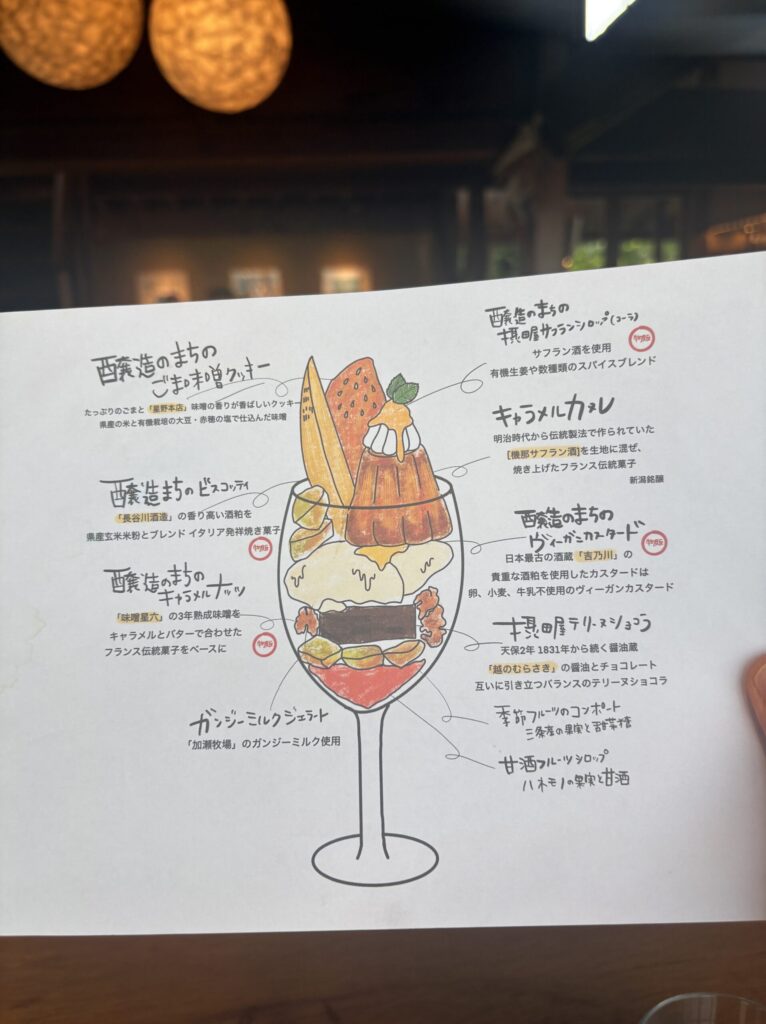 醸造のまちの
ごま味噌クッキー
たっぷりのごまと「星野本店」味噌の香りが香ばしいクッキー
県産の米と有機栽培の大豆・赤穂の塩で仕込んだ味噌
醸造まちのビスコッティ
「長谷川酒造」の香り高い酒粕を
県産玄米米粉とブレンド イタリア発祥焼き菓子
醸造のまちの
キャラメルナッツ
「味噌星六」の3年熟成味噌を
キャラメルとバターで合わせた
フランス伝統菓子をベースに
ガンジーミルクジェラート
「加瀬牧場」のガンジーミルク使用
醸造のまちの
摂田屋サフランシロップ(コーラ)
サフラン酒を使用
有機生姜や数種類のスパイスブレンド
キャラメルカヌレ
明治時代から伝統製法で作られていた
[機那サフラン酒]を生地に混ぜ、
焼き上げたフランス伝統菓子
新潟銘醸
醸造のまちの
ヴィーガンカスタード
日本最古の酒蔵「吉乃川」の
貴重な酒粕を使用したカスタードは
卵、小麦、牛乳不使用のヴィーガンカスタード
摂田屋テリーヌショコラ
天保2年 1831年から続く醤油蔵
「越のむらさき」の醤油とチョコレート
互いに引き立つバランスのテリーヌショコラ
季節フルーツのコンポート
三条産の果実と甜菜糖
甘酒フルーツシロップ
ハネモノの果実と甘酒